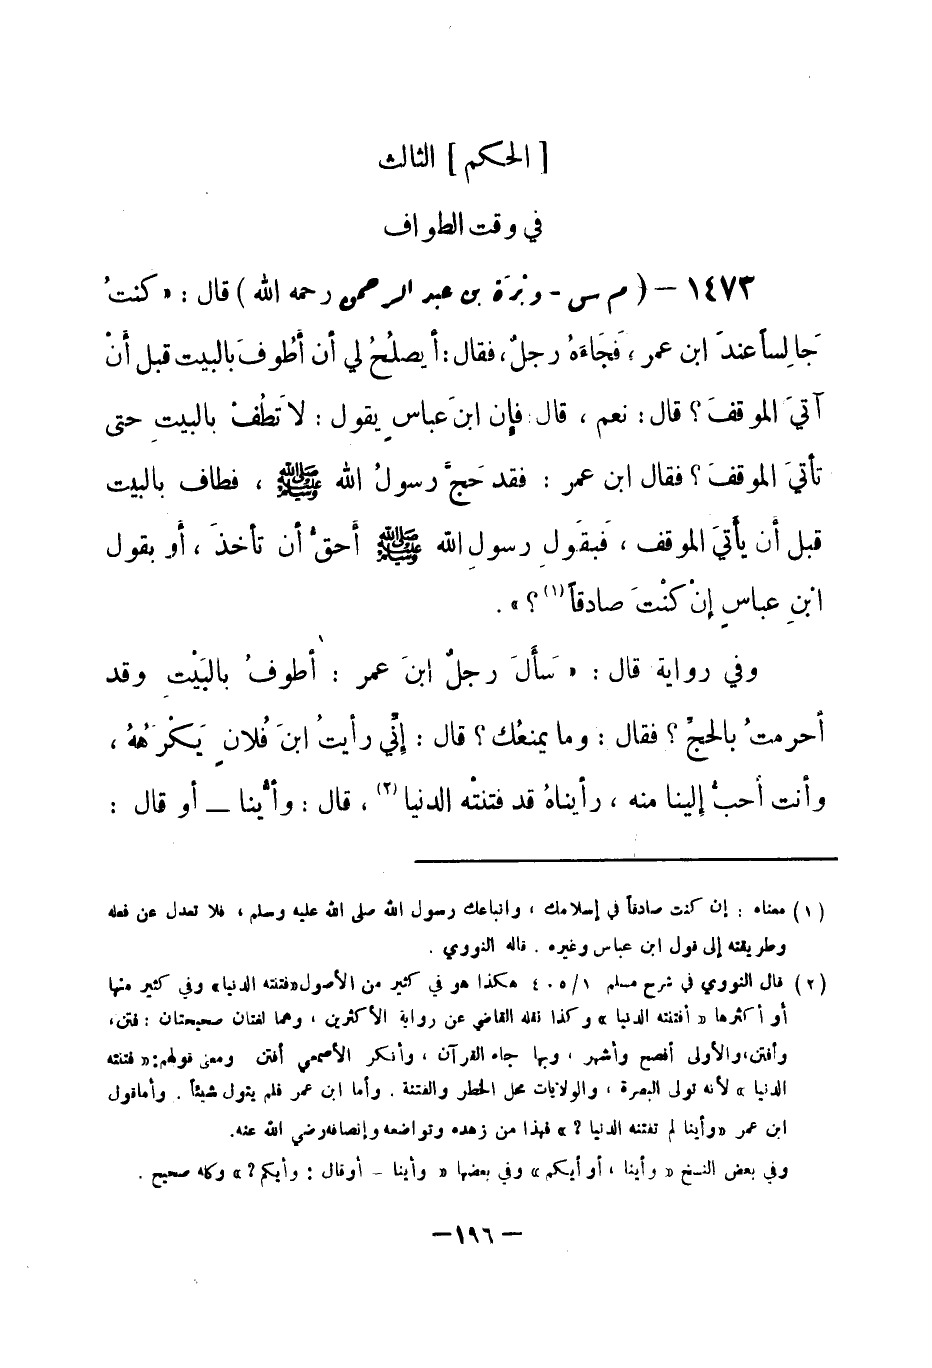 [ الحكم ] الثالث
في وقت الطواف
١٤٧٣ – ( م س - وَبْرَة بن عبد الرحمن رحمه الله ) قال : « كنتُ
جَالِساً عندَ ابن عمر ، فَجَاءَهُ رجلٌ ، فقال : أيصلُحُ لي أن أطُوفَ بالبيت قبل أنْ
آتيَ الموقفَ ؟ قال : نعم ، قال فإن ابنَ عباسٍ يقول : لا تَطُفْ بالبيتِ حتى
تأتيَ الموقفَ ؟ فقال ابن عمر : فقد حَجَّ رسولُ الله ﷺ ، فطاف بالبيت
قبل أن يأتيَ الموقف ، فَبقَولِ رسولِ الله ﷺ أحقُّ أن تأخذَ ، أو بقول
ابْنِ عباسٍ إنْ كنْتَ صادقاً (١) ؟ » .
وفي رواية قال : « سَأَلَ رجلٌ ابنَ عمر : أطوفُ بالبَيْتِ وقد
أحرمتُ بالحجِّ ؟ فقال : وما يمنعُك ؟ قال : إنِّي رأيتُ ابنَ فُلانٍ يَكْرَهُهُ ،
وأنت أحبُّ إلينا منه ، رأيناهُ قد فتنتْه الدنيا (٢) ، قال : وأيُّنا – أو قال :
(١) معناه : إن كنت صادقاً في إسلامك ، واتباعك رسول الله صلى الله عليه وسلم ، فلا تعدل عن فعله
وطريقته إلى قول ابن عباس وغيره . قاله النووي .
(٢) قال النووي في شرح مسلم ٤٠٥/١ هكذا هو في كثير من الأصول «فتنته الدنيا» وفي كثير منها
أو أكثرها « أفتنته الدنيا » وكذا نقله القاضي عن رواية الأكثرين ، وهما لغتان صحيحتان : فتن،
وأفتن،والأولى أفصح وأشهر ، وبها جاء القرآن ، وأنكر الأصمعي أفتن ومعنى قولهم:« فتنته
الدنيا » لأنه تولى البصرة ، والولايات محل الخطر والفتنة . وأما ابن عمر فلم يتول شيئاً . وأماقول
ابن عمر «وأينا لم تفتنه الدنيا ؟ » فهذا من زهده وتواضعه وإنصافه رضي الله عنه.
وفي بعض النسخ « وأينا ، أو أيكم » وفي بعضها « وأينا – أوقال : وأيكم ؟ » وكله صحيح .
– ١٩٦ –